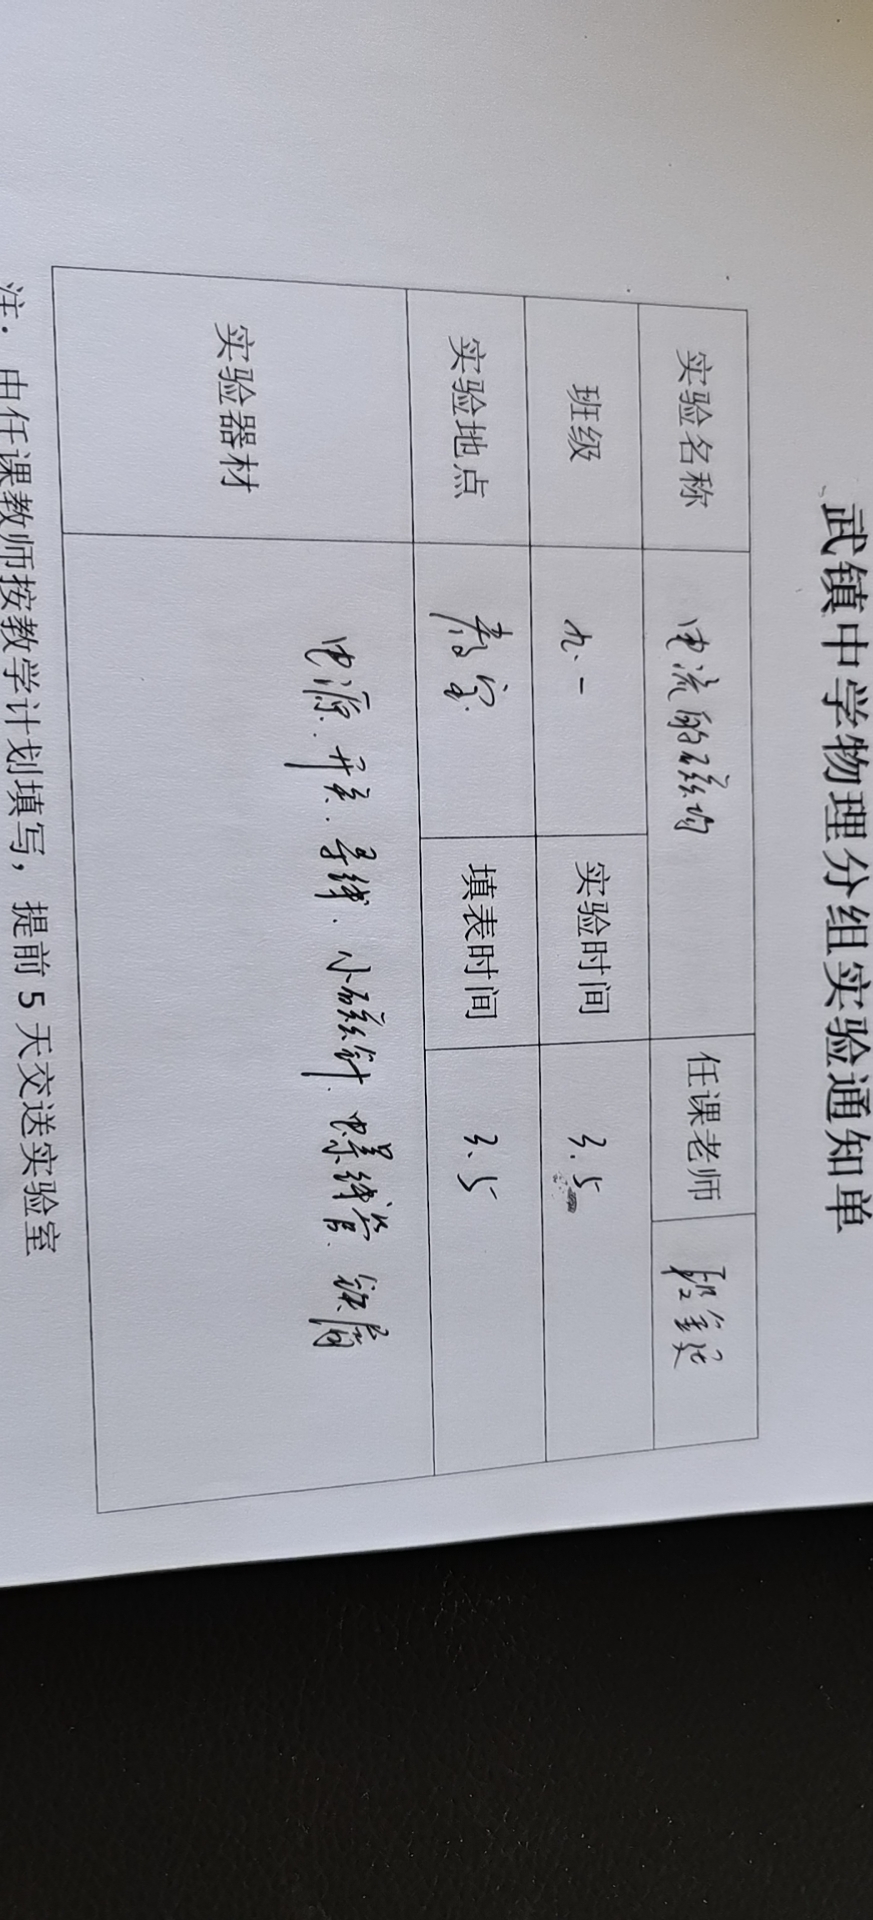 武镇中学物理分组实验通知单
实验名称 电流的磁场 任课老师
班级 九.一 实验时间 3.5
实验地点 教室 填表时间 3.5
实验器材 电源.开关.导线.小磁针.螺线管.铁屑
注:由任课教师按教学计划填写,提前5天交送实验室